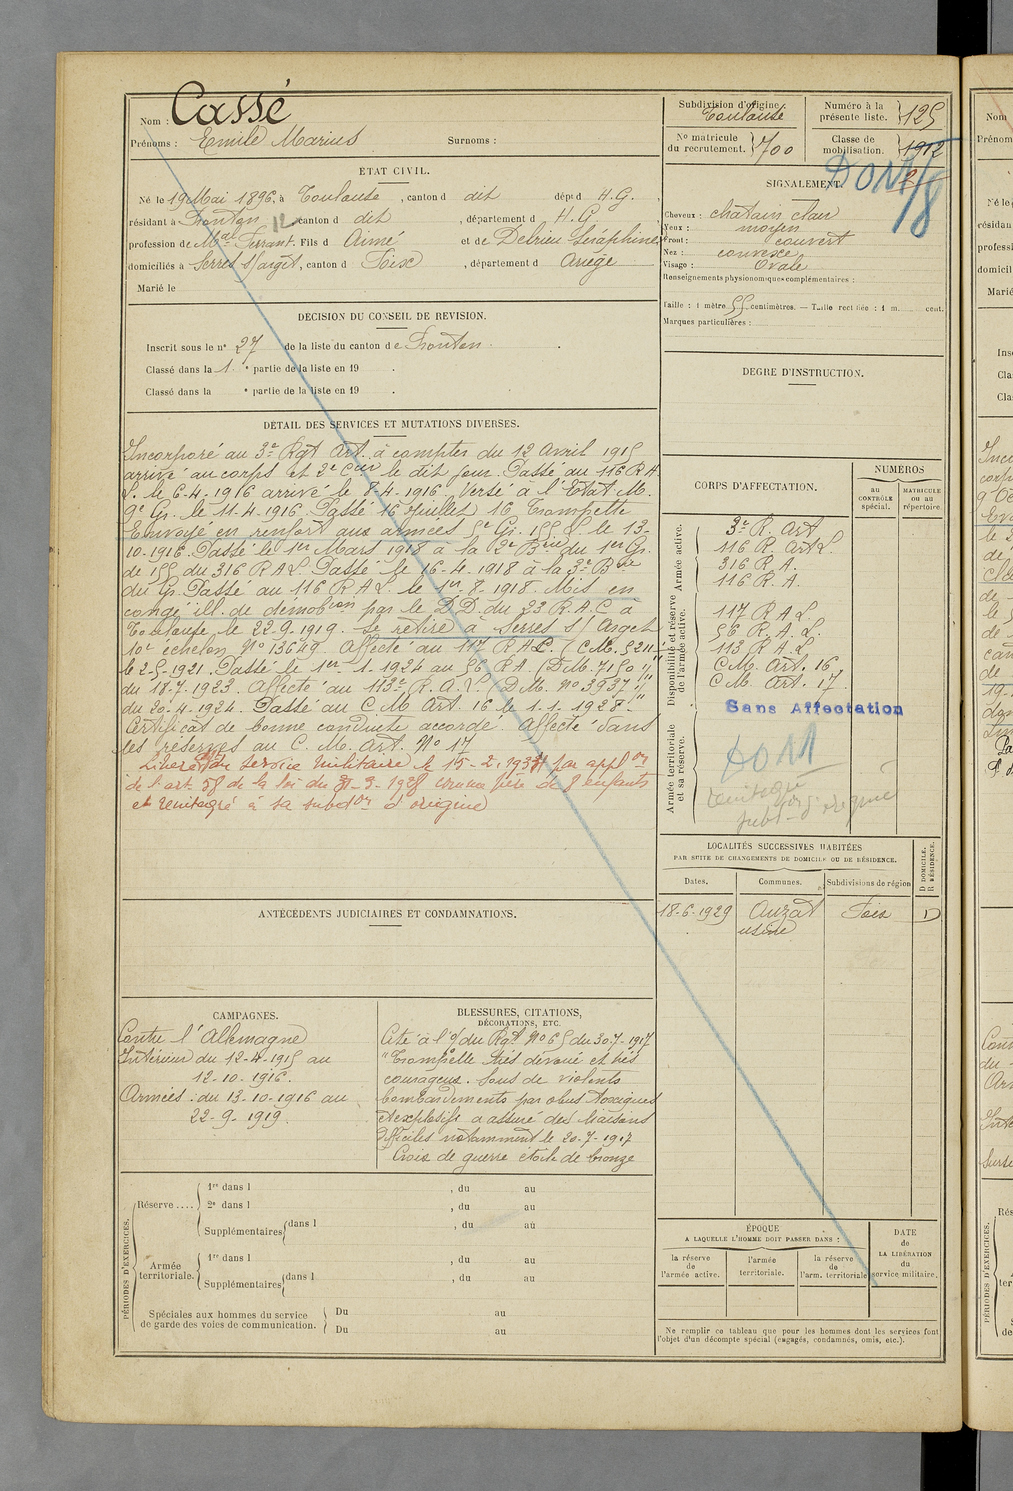 Nom : Cassé
Prénoms : Emile Marius Surnoms :
ÉTAT CIVIL.
Né le 19 Mai 1896, à Toulouse, canton d dit dépt d H.G.,
résidant à Fronton 12, canton d dit, département d H.G.
profession de Mal Ferrant. Fils d Aimé et de Delrieu Séraphine
domiciliés à Serres s/arget, canton d Foix, département d Ariège
Marié le
DÉCISION DU CONSEIL DE REVISION.
Inscrit sous le n° 27 de la liste du canton de Fronton.
Classé dans la 1 e partie de la liste en 19 .
Classé dans la e partie de la liste en 19 .
DÉTAIL DES SERVICES ET MUTATIONS DIVERSES.
Incorporé au 3e Rgt Art. à compter du 12 Avril 1915
arrivé au corps et 2e Cnr le dit jour. Passé au 116 R A
L. le 6-4-1916 arrivé le 8-4-1916. Versé à l'Etat M.
9e Gr. le 11-4-1916. Passé 16 Juillet 16 Trompette
Envoyé en renfort aux armées 5e Gr. 155 L. le 13-
10-1916. Passé le 1er Mars 1918 à la 2e Brie du 1er Gr.
de 155 du 316 R A L. Passé le 16-4-1918 à la 3e Brie
du Gr. Passé au 116 R A L. le 1er-8-1918. Mis en
congé ill. de démobion par le D.D. du 23 R.A.C à
Toulouse le 22-9-1919. Se retire à Serres s/ Arget
10e échelon N° 13649. Affecté au 117 R A L. (C.M. 5211
le 2-5-1921. Passé le 1er-1-1924 au 56 RA. (D.M. 7150 1/11
du 18-7-1923. Affecté au 113e R.A.L. (D M. N° 3937 1/11
du 20-4-1924. Passé au C M Art. 16 le 1-1-1928."
Certificat de bonne conduite accordé. Affecté dans
les réserves au C. M. Art. N° 17
Libéré du service militaire le 15-2-1937 par applon
de l'art 58 de la loi du 31-3-1928 comme père de 8 enfants
et réintégré à sa subdon d'origine
ANTÉCÉDENTS JUDICIAIRES ET CONDAMNATIONS.
CAMPAGNES.
Contre l'Allemagne
Intérieur du 12-4-1915 au
12-10-1916.
Armées : du 13-10-1916 au
22-9-1919.
BLESSURES, CITATIONS,
DÉCORATIONS, ETC.
Cité à l'o/ du Rgt N° 65 du 30-7-1917
"Trompette très dévoué et très
courageux. Sous de violents
bombardements par obus toxiques
et explosifs a assuré des liaisons
difficiles notamment le 20-7-1917
Croix de guerre étoile de bronze
PÉRIODES D'EXERCICES.
Réserve .... 1re dans l , du au
2e dans l , du au
Supplémentaires dans l , du au
Armée territoriale. 1re dans l , du au
Supplémentaires dans l , du au
Spéciales aux hommes du service
de garde des voies de communication. Du au
Du au
Subdivision d'origine
Toulouse
Numéro à la
présente liste. 125
N° matricule
du recrutement. 700
Classe de
mobilisation. 1912
DOM
18
SIGNALEMENT.
Cheveux : chatain clair
Yeux : moyen
Front : couvert
Nez : convexe
Visage : Ovale
Renseignements physionomiques complémentaires :
Taille : 1 mètre 55 centimètres. — Taille rectifiée : 1 m. cent.
Marques particulières :
DEGRÉ D'INSTRUCTION.
CORPS D'AFFECTATION.
NUMÉROS
au CONTRÔLE spécial.
MATRICULE ou au répertoire.
Armée active.
3e R. Art
116 R. Art L.
316 R.A.
116 R.A.
Disponibilité et réserve de l'armée active.
117 R A L.
56 R. A. L.
113 R A L.
C.M. Art. 16
C M. Art. 17
Sans Affectation
Armée territoriale et sa réserve.
DOM
réintégré
subdon d'origine
LOCALITÉS SUCCESSIVES HABITÉES
PAR SUITE DE CHANGEMENTS DE DOMICILE OU DE RÉSIDENCE.
Dates. Communes. Subdivisions de région D DOMICILE. R RÉSIDENCE.
18-6-1929 Auzat Foix D
usine
ÉPOQUE
A LAQUELLE L'HOMME DOIT PASSER DANS :
la réserve de l'armée active.
l'armée territoriale.
la réserve de l'arm. territoriale
DATE de LA LIBÉRATION du service militaire.
Ne remplir ce tableau que pour les hommes dont les services font
l'objet d'un décompte spécial (engagés, condamnés, omis, etc.).